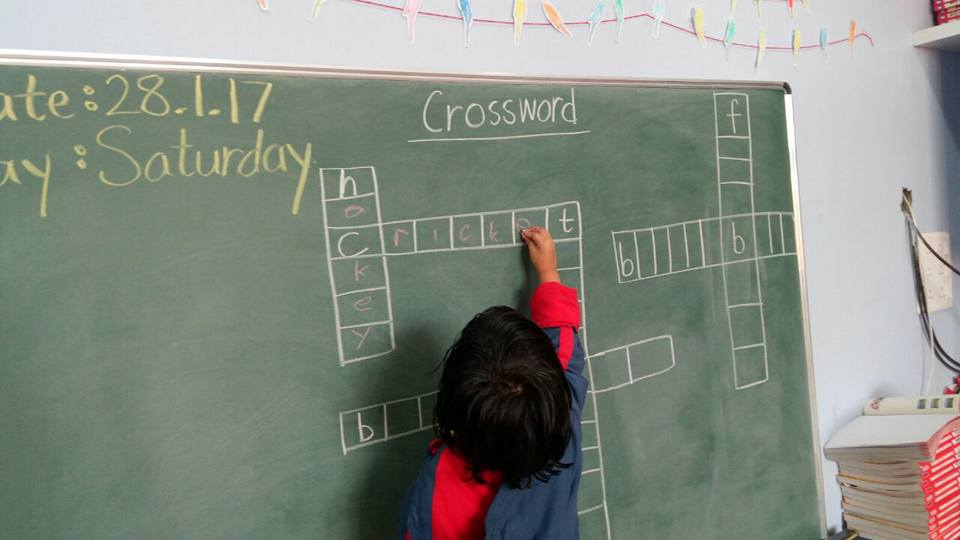 ate: 28.1.17
ay: Saturday
Crossword
h
o
C r i c k e t
k
e
y
b
f
b b